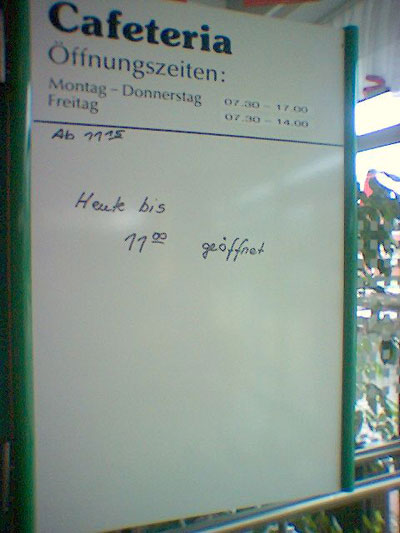 Cafeteria
Öffnungszeiten:
Montag – Donnerstag 07.30 – 17.00
Freitag 07.30 – 14.00
Ab 11 15
Heute bis
11 00 geöffnet